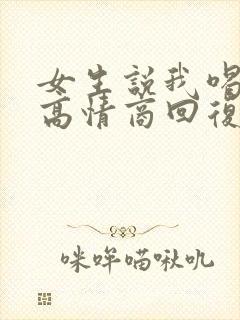 女生說我喝
高情商回復
咪哞喵啾吼